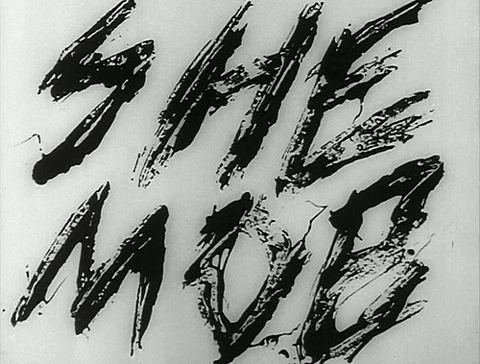 SHE
MOB